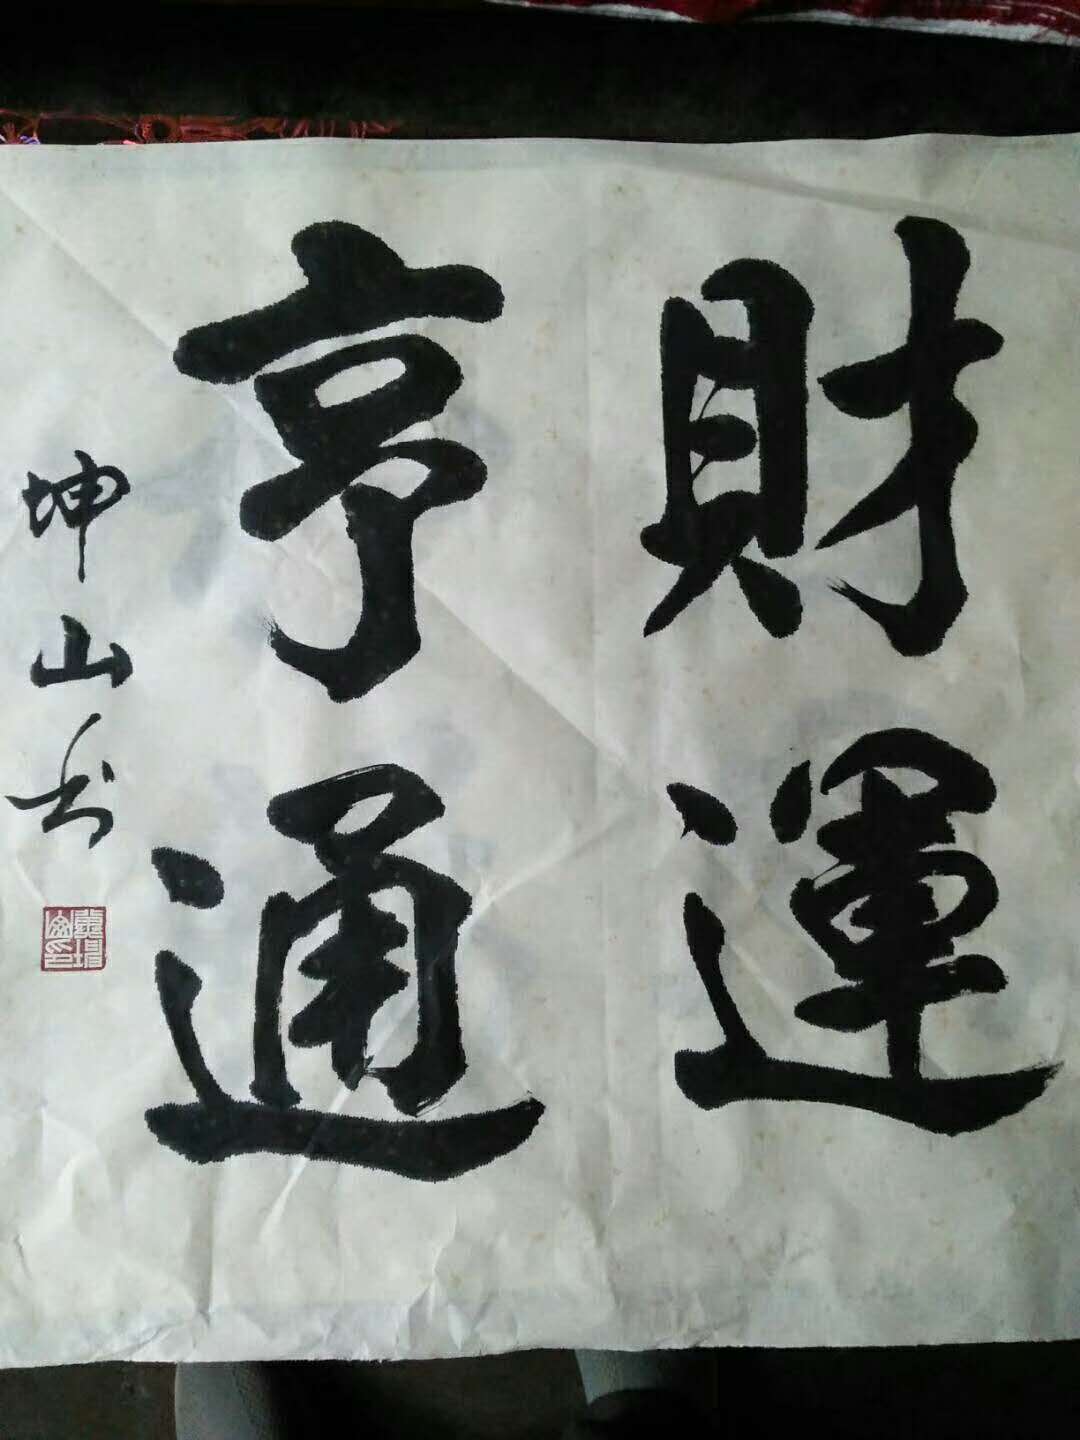 財運
亨通
坤山书